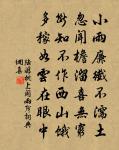 小雨廉纖不濡土
忽聞檐溜喜無窮
斷知不作西山餓
多稼如雲在眼中
陸游枕上聞雨